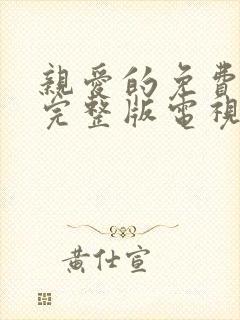 親愛的免費
完整版電視
黃仕宣